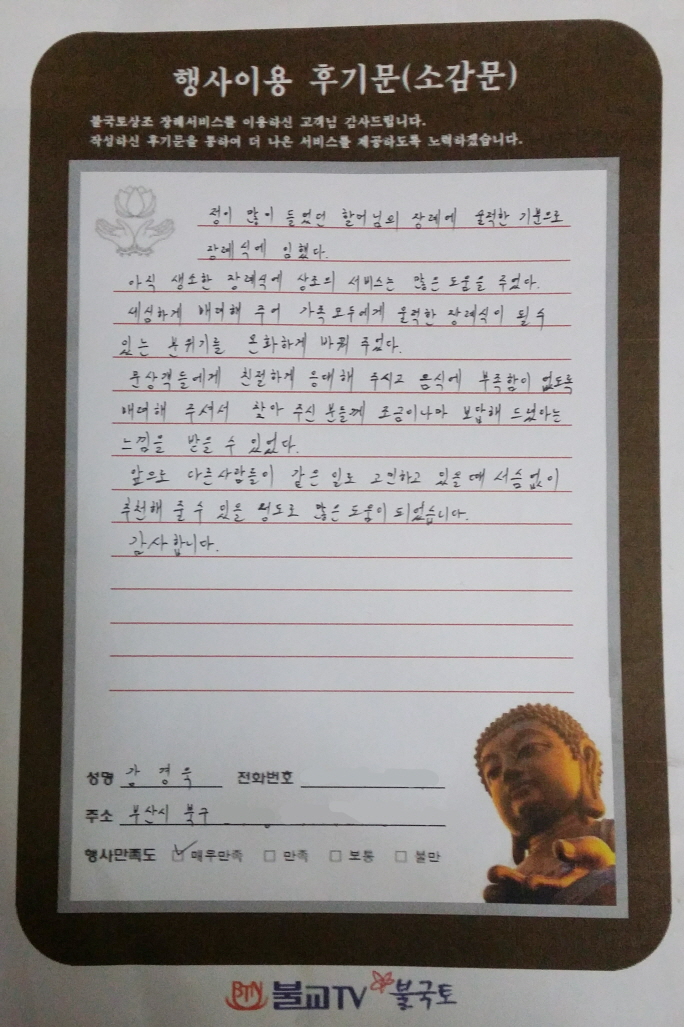 행사이용 후기문(소감문)
불국토상조 장례서비스를 이용하신 고객님 감사드립니다.
작성하신 후기문을 통하여 더 나은 서비스를 제공하도록 노력하겠습니다.
정이 많이 들었던 할머님의 장례에 울적한 기분으로
장례식에 임했다.
아직 생소한 장례식에 상조의 서비스는 많은 도움을 주었다.
세심하게 배려해 주어 가족모두에게 울적한 장례식이 될 수
있는 분위기를 온화하게 바꿔 주었다.
문상객들에게 친절하게 응대해 주시고 음식에 부족함이 없도록
배려해 주셔서 찾아 주신 분들께 조금이나마 보답해 드렸다는
느낌을 받을 수 있었다.
앞으로 다른사람들이 같은 일로 고민하고 있을때 서슴없이
추천해 줄 수 있을 정도로 많은 도움이 되었습니다.
감사합니다.
성명 강경욱 전화번호
주소 부산시 북구
행사만족도 매우만족 만족 보통 불만
BTN 불교TV 불국토